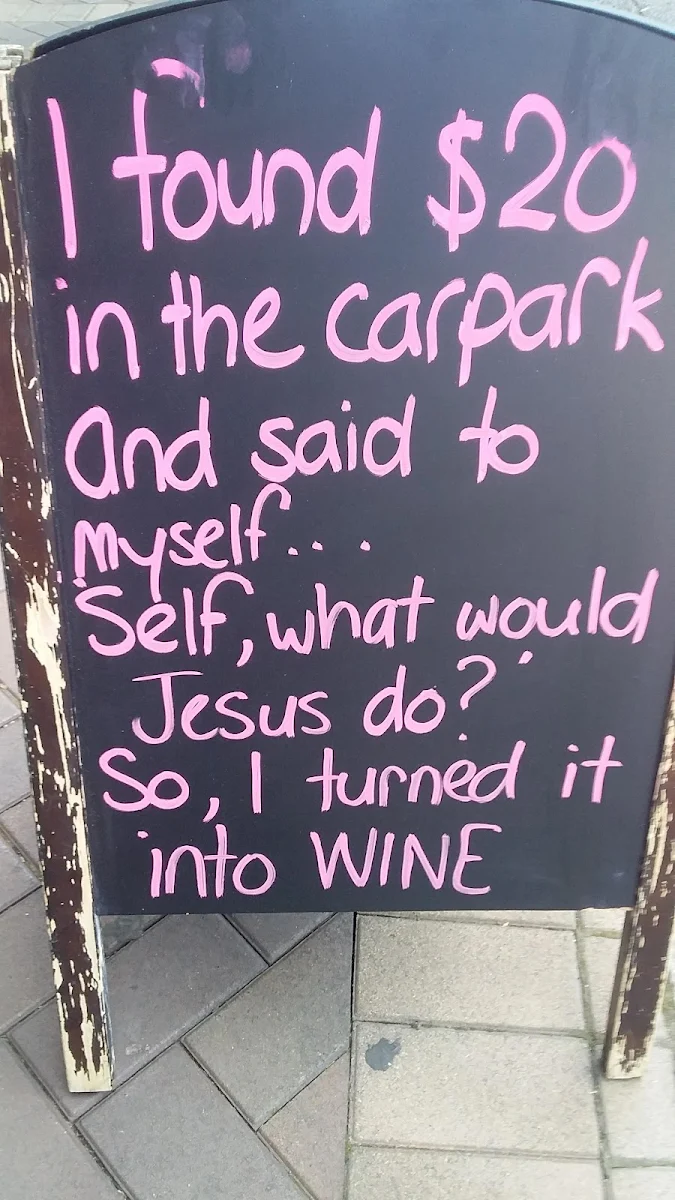 I found $20
in the carpark
and said to
myself...
Self, what would
Jesus do?
So, I turned it
into WINE